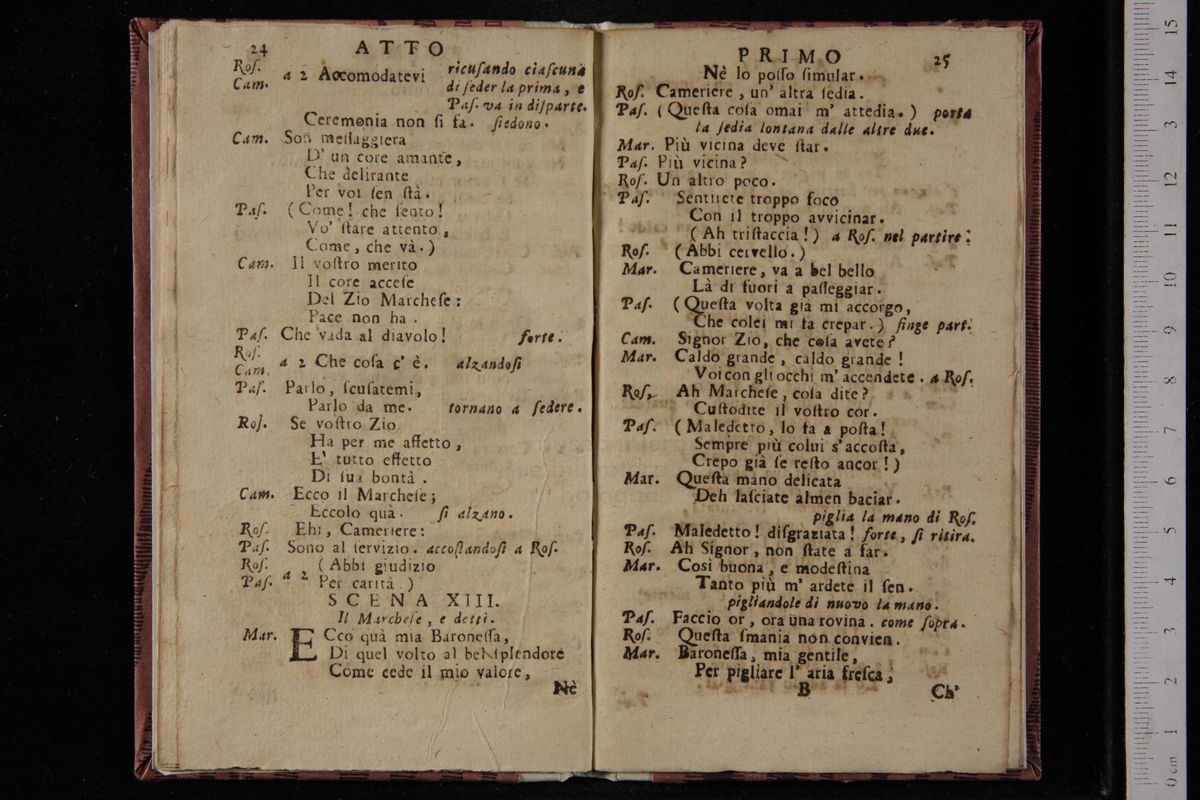 24 ATTO
Roſ.
Cam. a 2 Accomodatevi ricuſando ciaſcuna
di ſeder la prima, e
Paſ. va in diſparte.
Ceremonia non ſi fa. ſiedono.
Cam. Son meſſaggiera
D' un core amante,
Che delirante
Per voi ſen ſtà.
Paſ. (Come! che ſento!
Vo' ſtare attento,
Come, che và.)
Cam. Il voſtro merito
Il core acceſe
Del Zio Marcheſe:
Pace non ha.
Paſ. Che vada al diavolo! forte.
Roſ.
Cam. a 2 Che coſa c' è. alzandoſi
Paſ. Parlo, ſcuſatemi,
Parlo da me. tornano a ſedere.
Roſ. Se voſtro Zio
Ha per me affetto,
E' tutto effetto
Di ſua bontà.
Cam. Ecco il Marcheſe;
Eccolo quà. ſi alzano.
Roſ. Ehi, Cameriere:
Paſ. Sono al ſervizio. accoſtandoſi a Roſ.
Roſ. a 2 (Abbi giudizio
Paſ. Per carità.)
SCENA XIII.
Il Marcheſe, e detti.
Mar. ECco quà mia Baroneſſa,
Di quel volto al bel ſplendore
Come cede il mio valore,
Nè
PRIMO 25
Nè lo poſſo ſimular.
Roſ. Cameriere, un' altra ſedia.
Paſ. (Queſta coſa omai m' attedia.) porta
la ſedia lontana dalle altre due.
Mar. Più vicina deve ſtar.
Paſ. Più vicina?
Roſ. Un altro poco.
Paſ. Sentirete troppo foco
Con il troppo avvicinar.
(Ah triſtaccia!) a Roſ. nel partire.
Roſ. (Abbi cervello.)
Mar. Cameriere, va a bel bello
Là di fuori a paſſeggiar.
Paſ. (Queſta volta già mi accorgo,
Che colei mi fa crepar.) finge part.
Cam. Signor Zio, che coſa avete?
Mar. Caldo grande, caldo grande!
Voi con gli occhi m' accendete. a Roſ.
Roſ. Ah Marcheſe, coſa dite?
Cuſtodite il voſtro cor.
Paſ. (Maledetto, lo fa a poſta!
Sempre più colui s' accoſta,
Crepo già ſe reſto ancor!)
Mar. Queſta mano delicata
Deh laſciate almen baciar.
piglia la mano di Roſ.
Paſ. Maledetto! diſgraziata! forte, ſi ritira.
Roſ. Ah Signor, non ſtate a far.
Mar. Così buona, e modeſtina
Tanto più m' ardete il ſen.
pigliandole di nuovo la mano.
Paſ. Faccio or, ora una rovina. come ſopra.
Roſ. Queſta ſmania non convien.
Mar. Baroneſſa, mia gentile,
Per pigliare l' aria freſca,
B Ch'